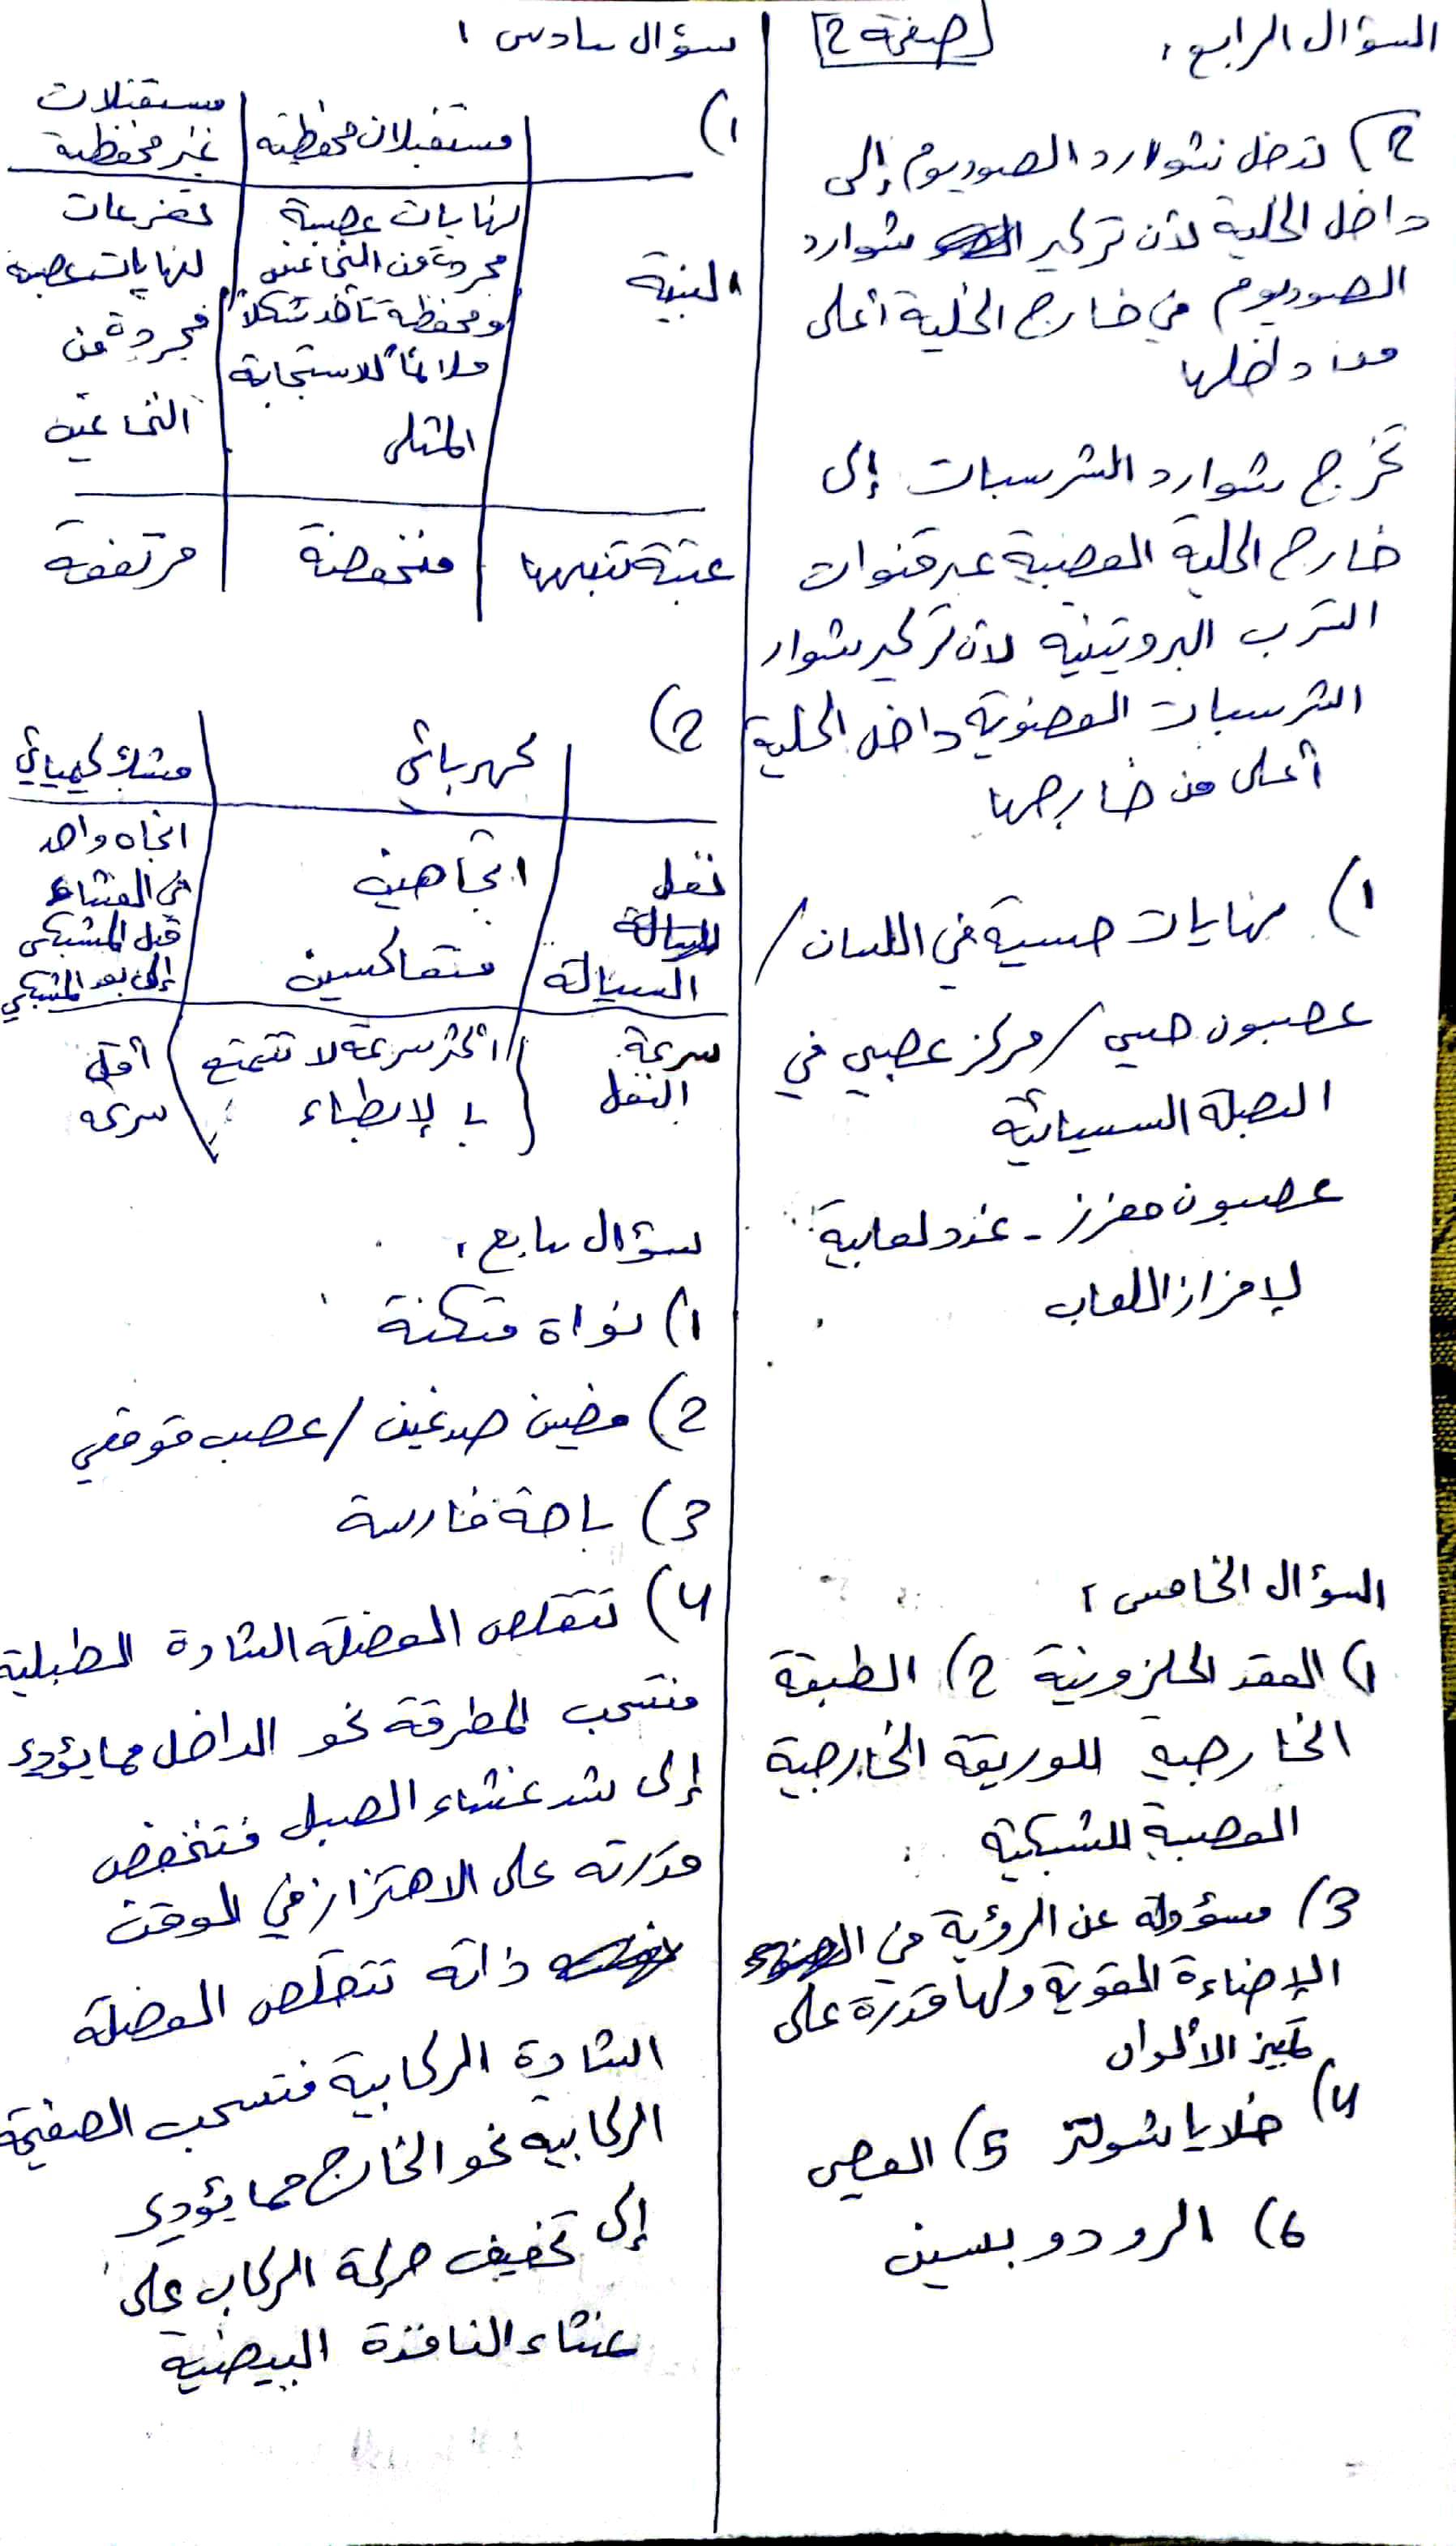 صفحة 2
السؤال الرابع:
2) تدخل شوارد الصوديوم إلى
داخل الخلية لأن تركيز شوارد
الصوديوم في خارج الخلية أعلى
من داخلها
تخرج شوارد الشرسبات إلى
خارج الخلية العصبية عبر قنوات
التسرب البروتينية لأن تركيز شوارد
الشرسبات العضوية داخل الخلية
أعلى من خارجها
1) نهايات حسية في اللسان /
عصبون حسي / مركز عصبي في
البصلة السيسائية
عصبون مفرز - غدد لعابية
لإفراز اللعاب
السؤال الخامس:
1) العقد الحلزونية 2) الطبقة
الخارجية للوريقة الخارجية
العصبية للشبكية
3) مسؤولة عن الرؤية في
الإضاءة القوية ولها قدرة على
تمييز الألوان
4) خلايا شولتز 5) العصي
6) الرودوبسين
سؤال سادس:
1)
مستقبلات محفظية | مستقبلات غير محفظية
البنية | نهايات عصبية مجردة من النخاعين ومحفظة تأخذ شكلاً ملائماً للاستجابة المثلى | تفرعات لنهايات عصبية مجردة من النخاعين
عتبة تنبيهها | منخفضة | مرتفعة
2)
كهربائي | مشبك كيميائي
نقل السيالة | اتجاهين متعاكسين | اتجاه واحد من الغشاء قبل المشبكي إلى بعد المشبكي
سرعة النقل | أكثر سرعة لا تتمتع بالإبطاء | أقل سرعة
سؤال سابع:
1) نواة متكئة
2) فصين صدغين / عصب قوقعي
3) باحة فارسة
4) تتقلص العضلة الشادة الطبلية
فتسحب المطرقة نحو الداخل مما يؤدي
إلى شد غشاء الطبل فتنخفض
قدرته على الاهتزاز في الوقت
ذاته تتقلص العضلة
الشادة الركابية فتسحب الصفيحة
الركابية نحو الخارج مما يؤدي
إلى تخفيف حركة الركاب على
غشاء النافذة البيضية